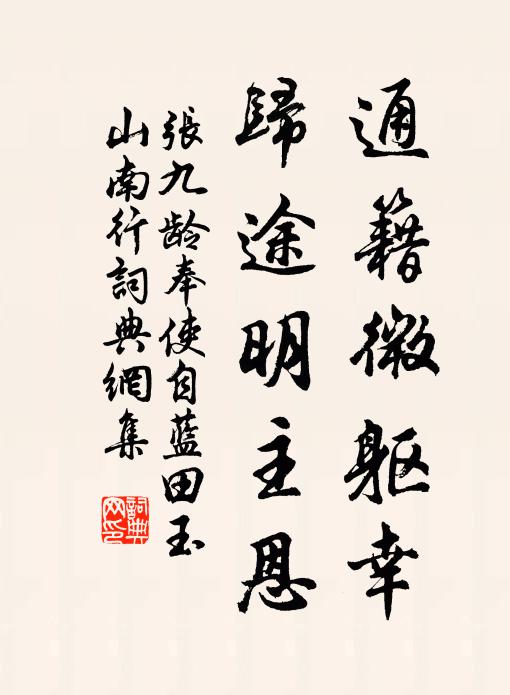 通籍微躯幸
歸途明主恩
張九龄奉使自藍田玉
山南行詞典網集
詞典
网印